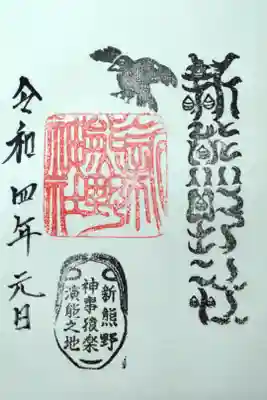 新熊野神社
新熊野
神事猿楽
演能之地
令和四年元日